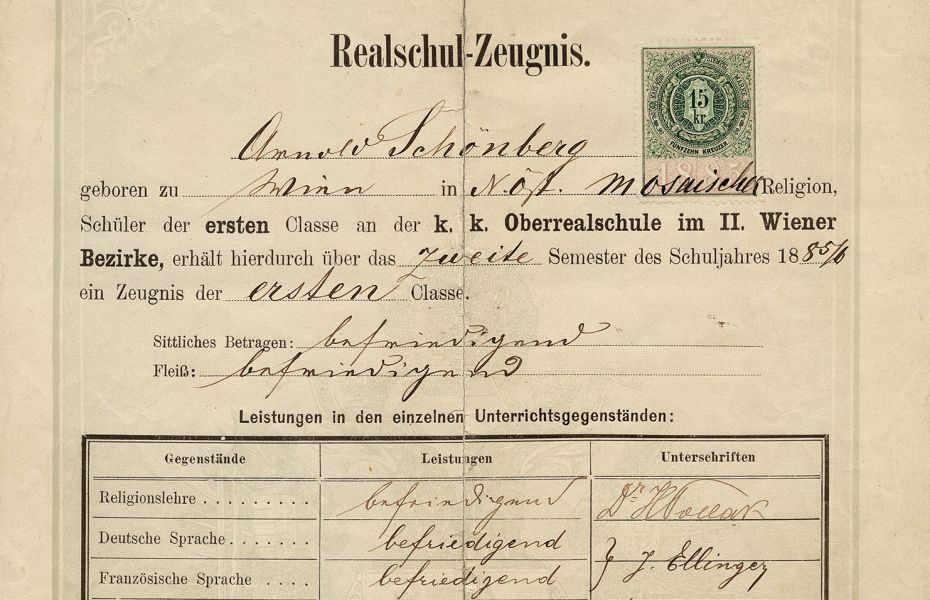 Realschul-Zeugnis.
15
kr
FÜNFZEHN KREUZER
1885
Arnold Schönberg
geboren zu Wien in N. Öst. mosaischer Religion,
Schüler der ersten Classe an der k. k. Oberrealschule im II. Wiener
Bezirke, erhält hierdurch über das zweite Semester des Schuljahres 1885/6
ein Zeugnis der ersten Classe.
Sittliches Betragen: befriedigend
Fleiß: befriedigend
Leistungen in den einzelnen Unterrichtsgegenständen:
Gegenstände Leistungen Unterschriften
Religionslehre befriedigend Dr. H Pollak
Deutsche Sprache befriedigend
Französische Sprache befriedigend J. Ellinger